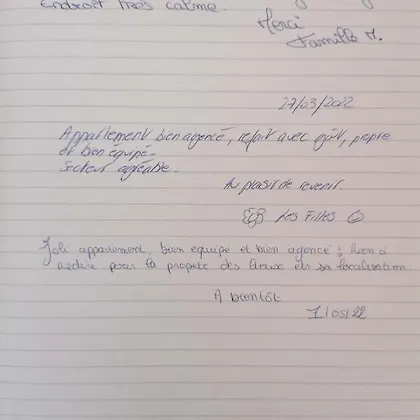 Endroit très calme.
Merci
Famille M.
27/03/2022
Appartement bien agencé, refait avec goût, propre
et bien équipé.
Secteur agréable.
Au plaisir de revenir.
Les Filles
Joli appartement, bien equipé et bien agencé ! Rien à
redire pour la propreté des lieux et sa localisation.
A bientôt